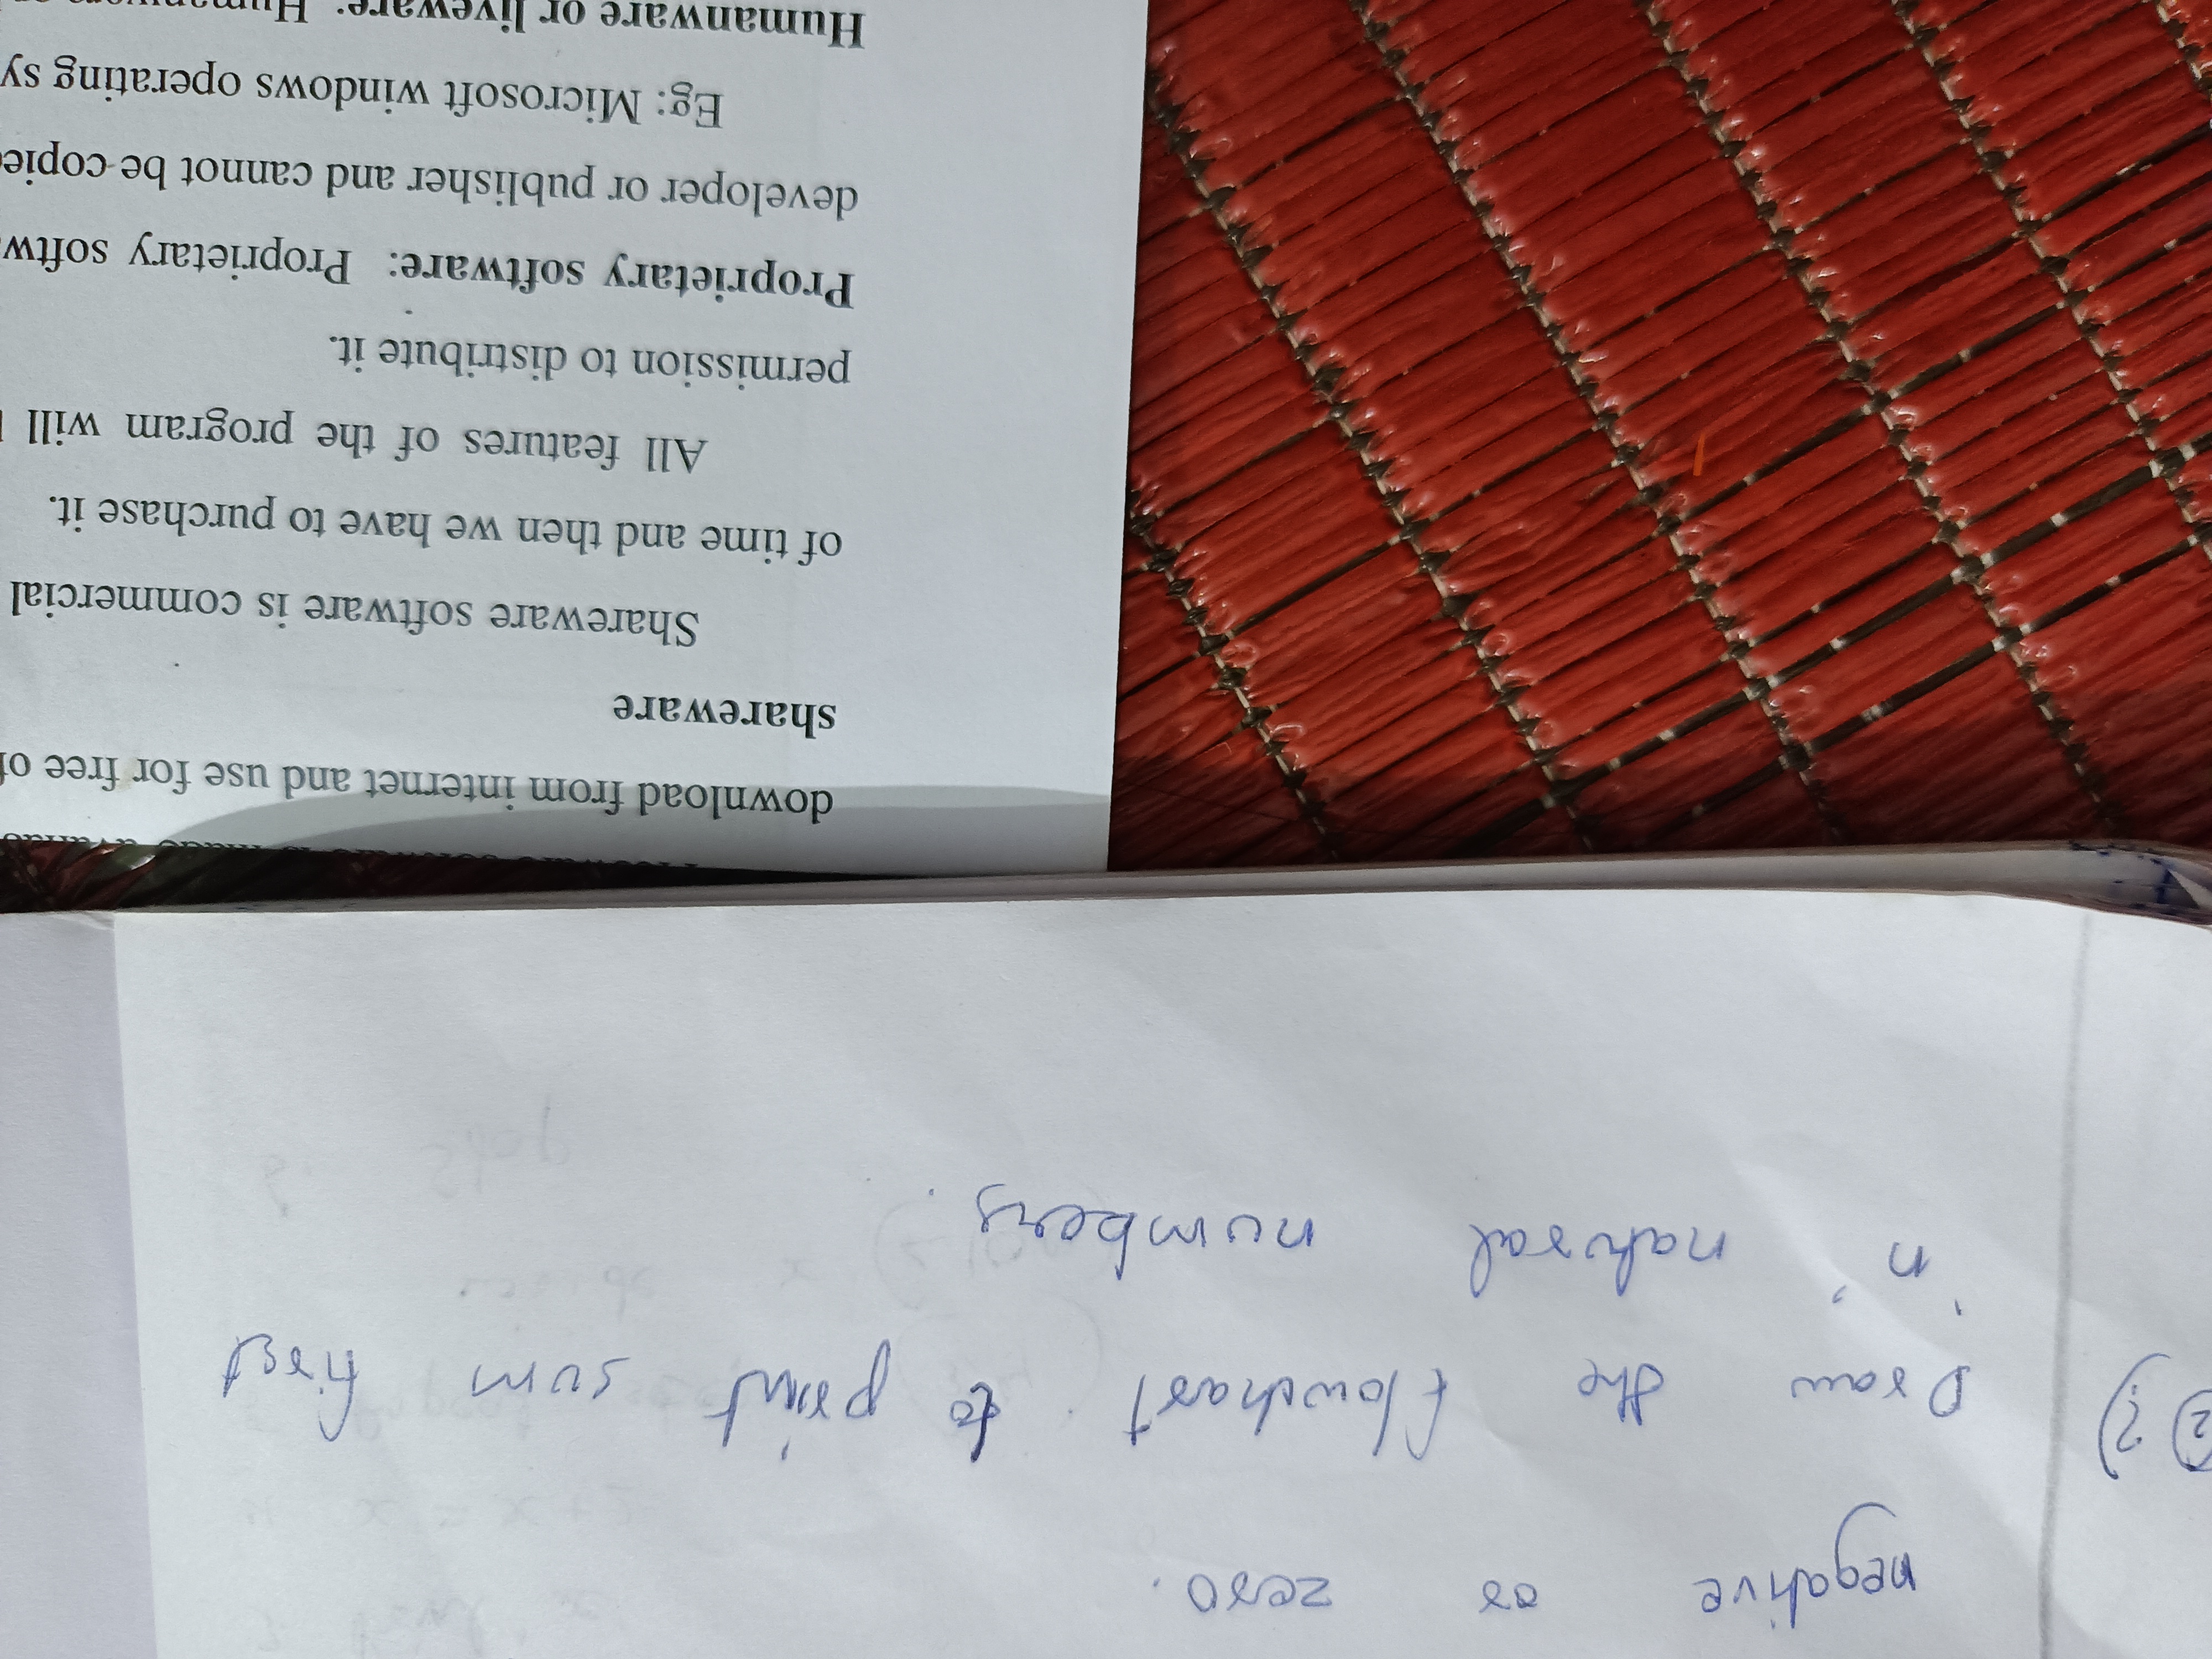 negative or zero.
2) ?) Draw the flowchart to print sum first
'n' natural numbers.
download from internet and use for free of
shareware
Shareware software is commercial
of time and then we have to purchase it.
All features of the program will
permission to distribute it.
Proprietary software: Proprietary softw
developer or publisher and cannot be copie
Eg: Microsoft windows operating sy
Humanware or liveware: